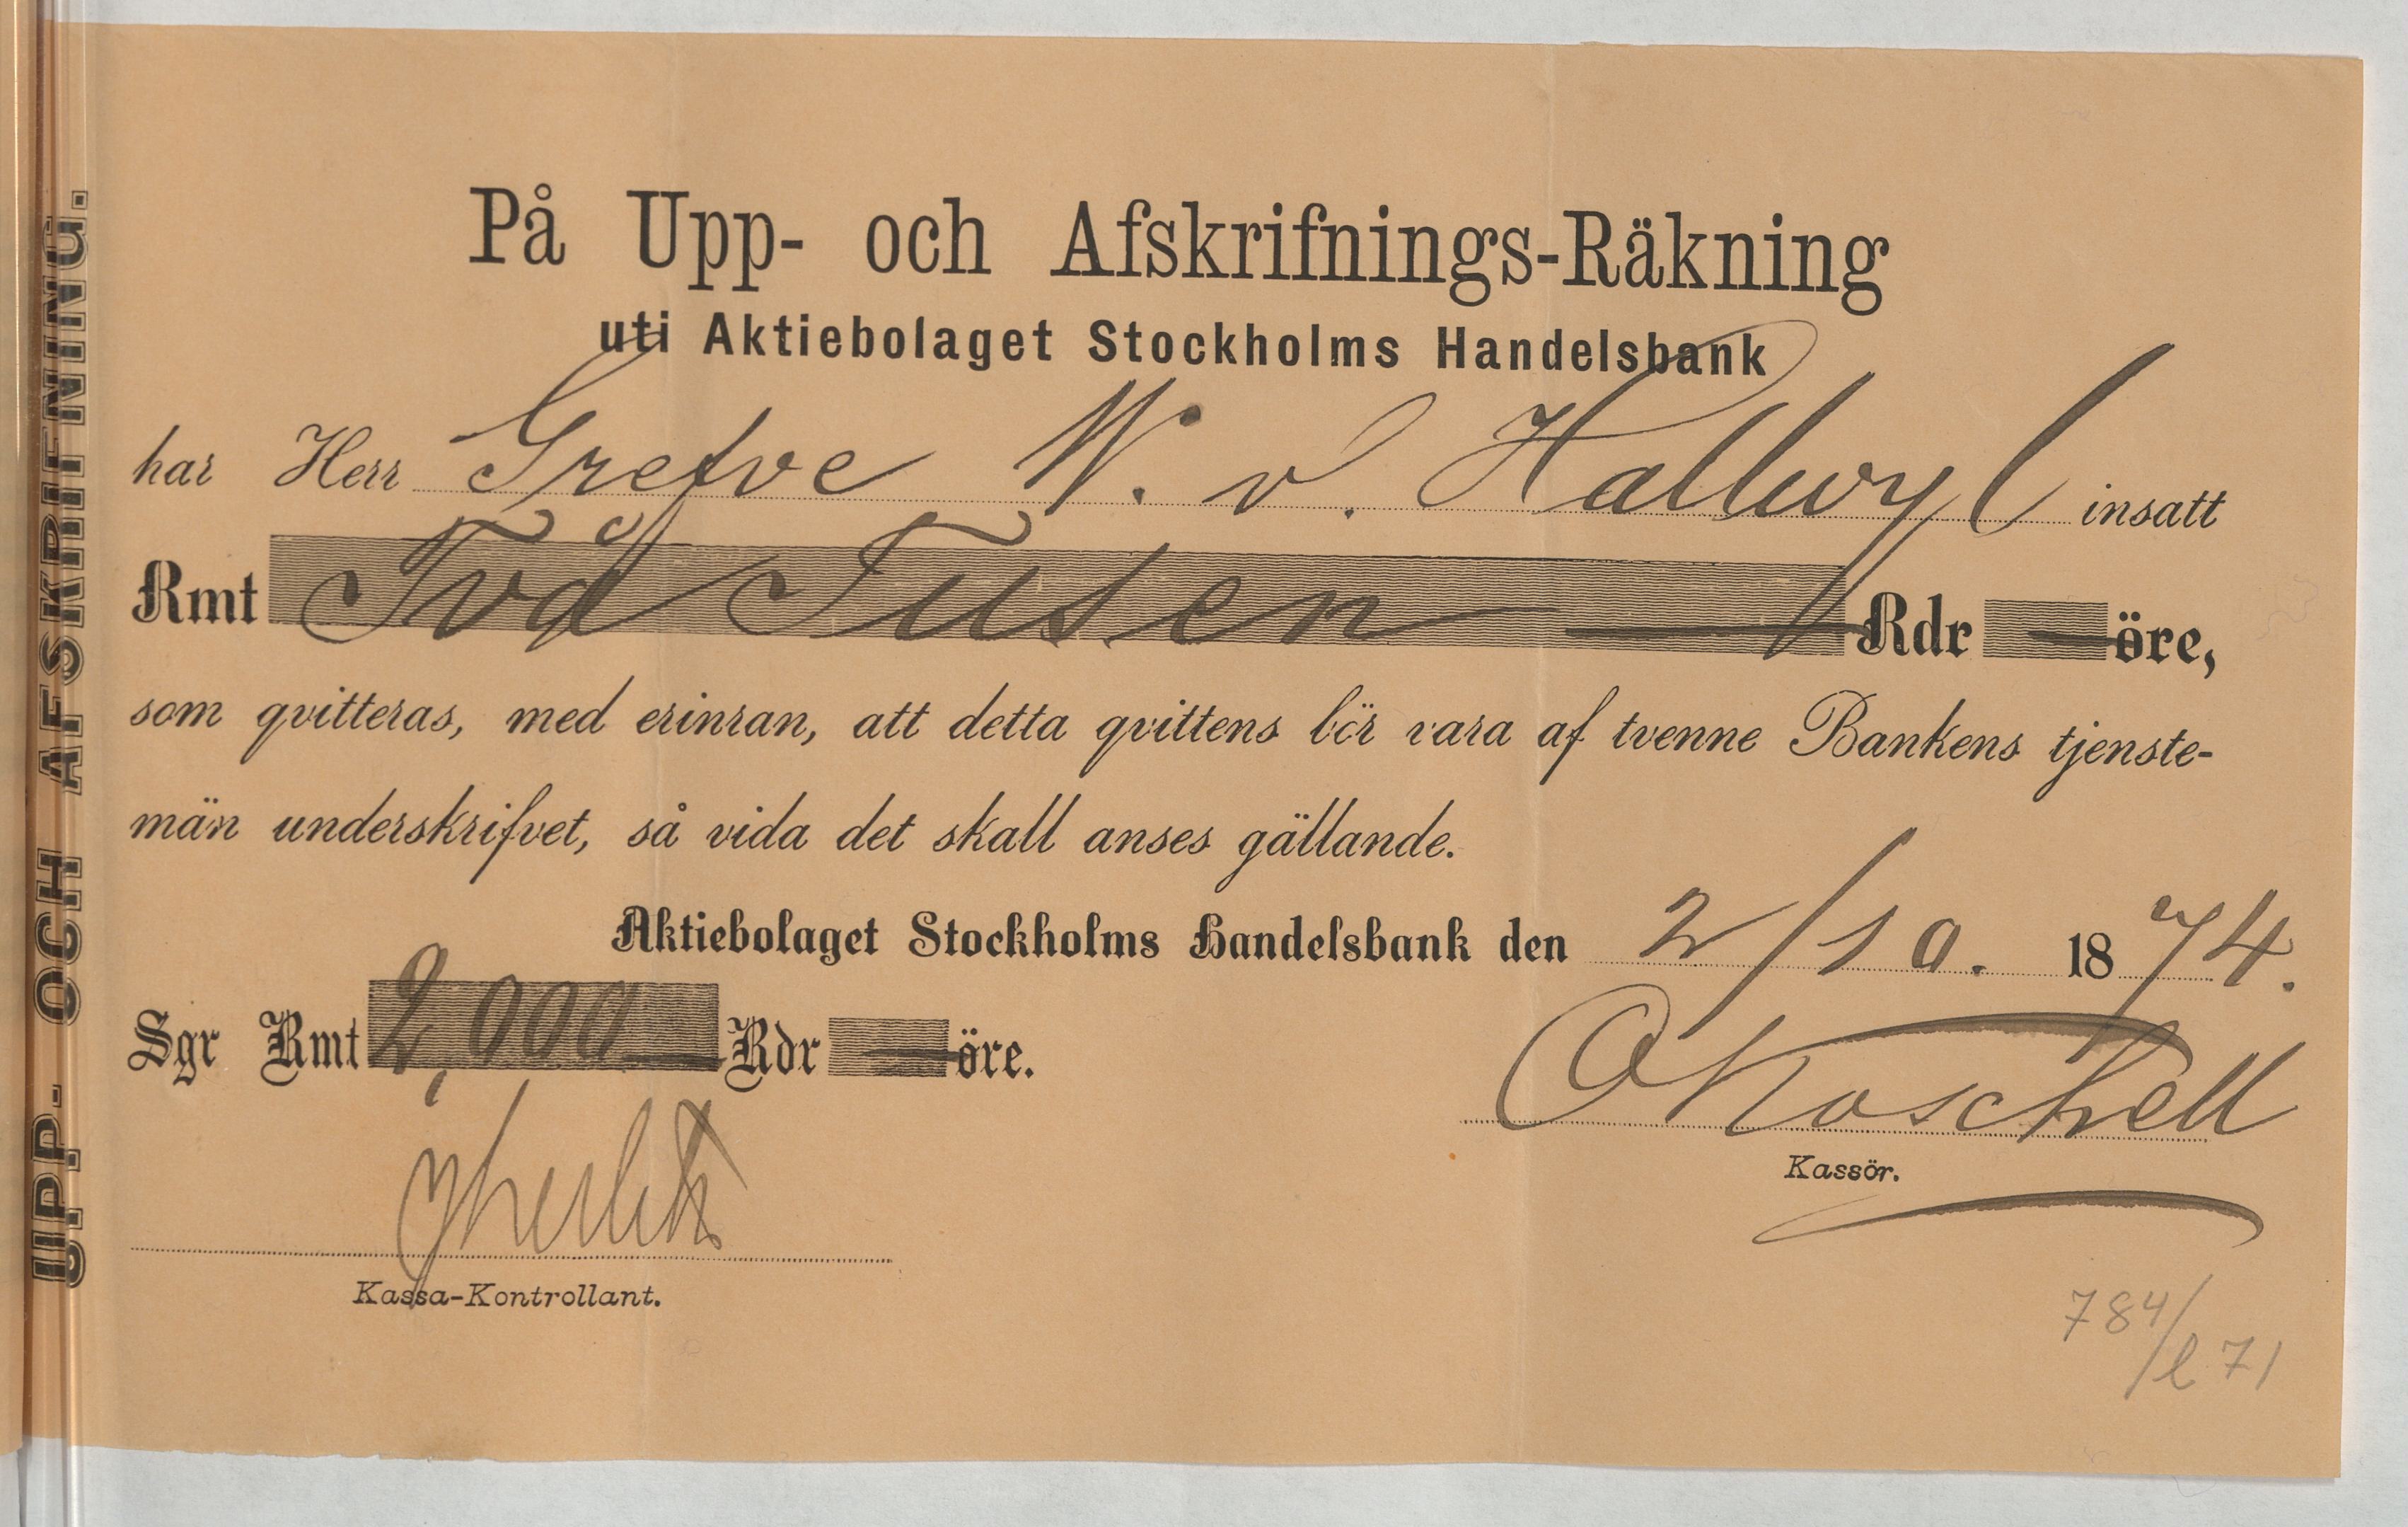 UPP- OCH AFSKRIFNING.
På Upp- och Afskrifnings-Räkning
uti Aktiebolaget Stockholms Handelsbank
har Herr Grefve W. v. Hallwyl insatt
Rmt Två Tusen — Rdr — öre,
som qvitteras, med erinran, att detta qvittens bör vara af tvenne Bankens tjenste-
män underskrifvet, så vida det skall anses gällande.
Aktiebolaget Stockholms Handelsbank den 2/10. 1874.
Sgr Rmt 2,000 — Rdr — öre.
Kassör.
Kassa-Kontrollant.
784/
l 71